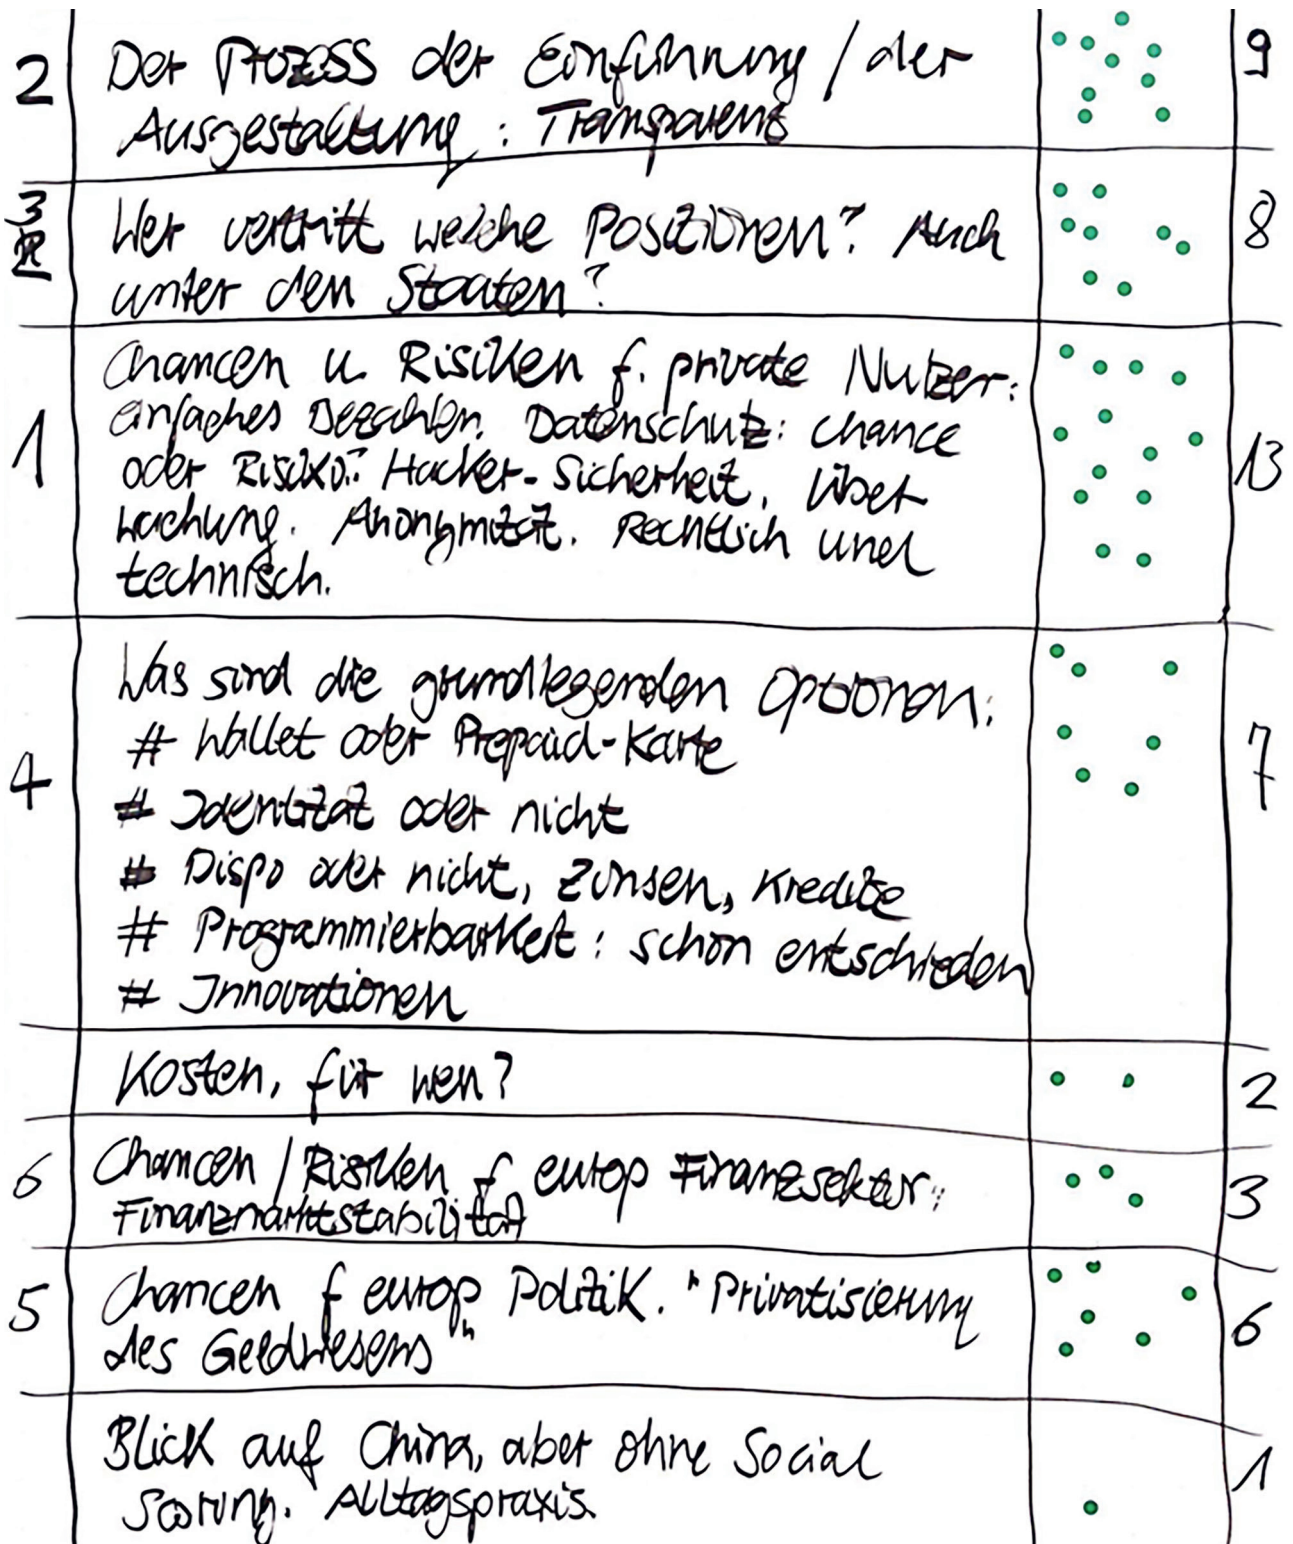 2 Der Prozess der Einführung / der 9
Ausgestaltung: Transparenz
3 Wer vertritt welche Positionen? Auch 8
unter den Staaten?
Chancen u. Risiken f. private Nutzer:
einfaches Bezahlen. Datenschutz: Chance
1 oder Risiko? Hacker-Sicherheit, Über 13
wachung. Anonymität. Rechtlich und
technisch.
Was sind die grundlegenden Optionen:
# Wallet oder Prepaid-Karte 7
4 # Identität oder nicht
# Dispo oder nicht, Zinsen, Kredite
# Programmierbarkeit: schon entschieden
# Innovationen
Kosten, für wen? 2
6 Chancen / Risiken f europ Finanzsektor: 3
Finanzmarktstabilität
5 Chancen f europ Politik. "Privatisierung 6
des Geldwesens"
Blick auf China, aber ohne Social 1
Scoring. Alltagspraxis.